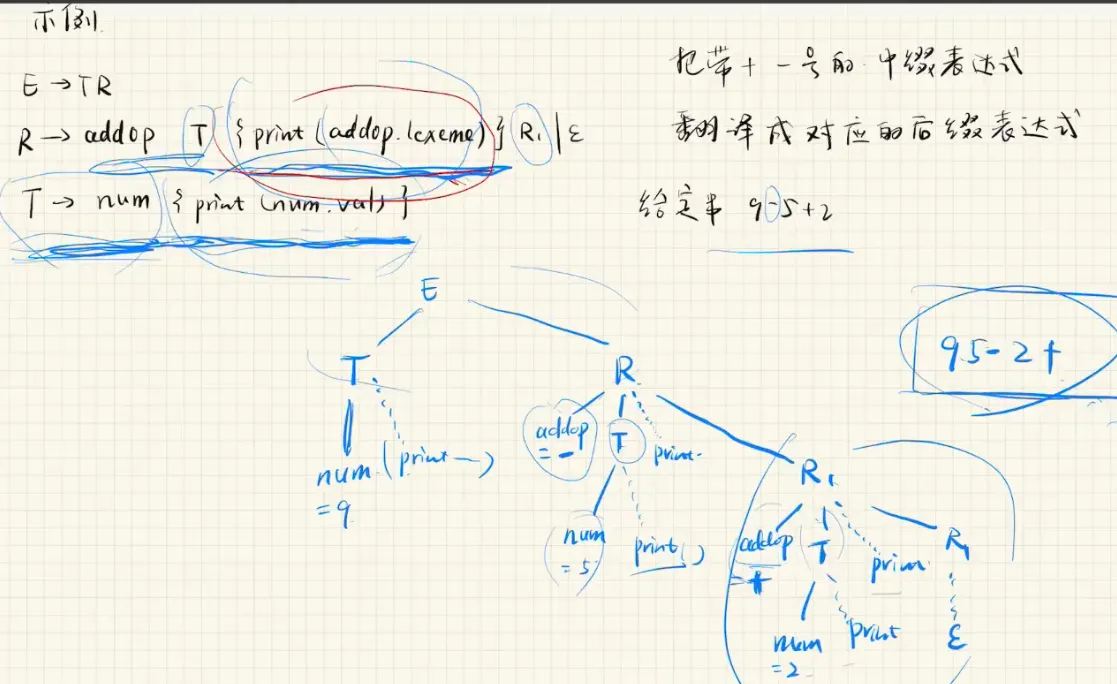 示例.
E → TR
R → addop T {print (addop.lexeme)} R₁ | ε
T → num {print (num.val)}
把带+一号的 中缀表达式
翻译成对应的后缀表达式
给定串 9-5+2
95-2+
E
T R
num (print —)
= 9
addop T print
= -
num print()
= 5
R₁
addop T print R₁
= +
num print ε
= 2